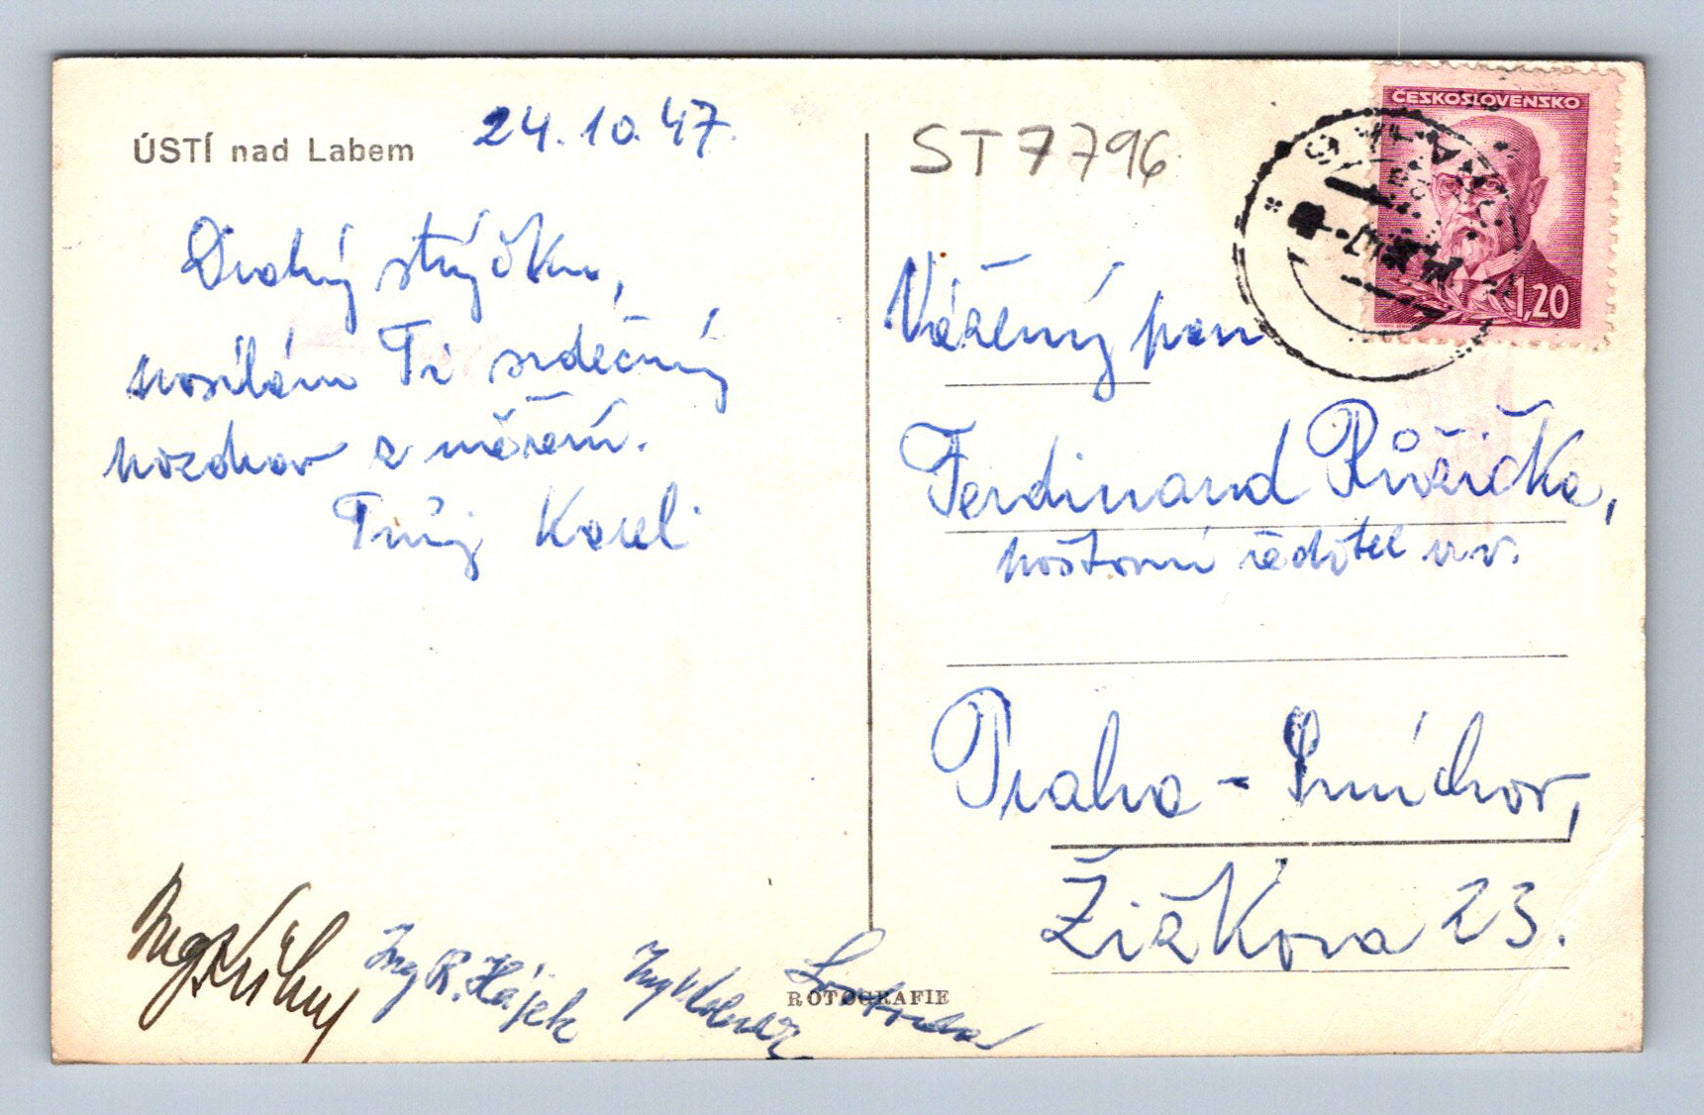 ÚSTÍ nad Labem
24.10.47.
Drahý strýčku,
posílám Ti srdečný
pozdrav z měření.
Tvůj Karel
Ing R. Hájek
Svoboda
ROTOGRAFIE
ST 7796
ČESKOSLOVENSKO
1,20
Vážený pan
Ferdinand Růžička,
poštovní ředitel v.v.
Praha - Smíchov,
Žižkova 23.